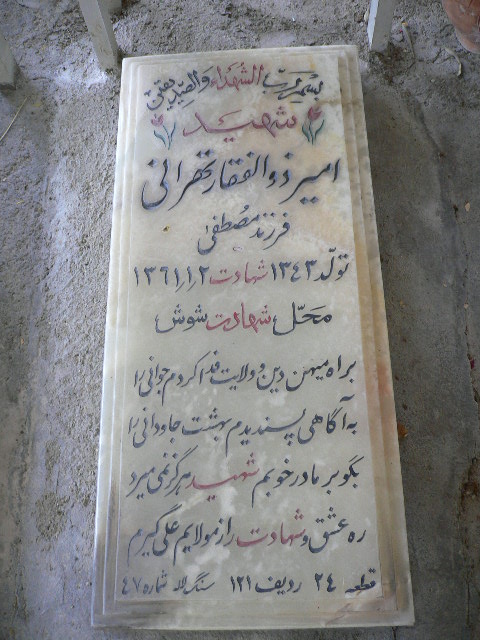 بسم رب الشهداء والصدیقین
شهید
امیر ذوالفقار تهرانی
فرزند مصطفی
تولد ۱۳۴۳ شهادت ۱۳۶۱٫۱٫۲
محل شهادت شوش
براه میهن دین و ولایت فدا کردم جوانی را
به آگاهی پسندیدم بهشت جاودانی را
بگو بر مادر خوبم شهید هرگز نمی میرد
ره عشق و شهادت را ز مولایم علی گیرم
قطعه ۲۴ ردیف ۱۲۱ سنگ لاله شماره ۴۷